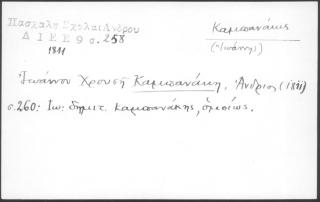 Πασχάλη Σχολαι Άνδρου
Δ Ι Ε Ε 9 σ. 258
1811
Καμπανάκης
(Ἰωάννης)
Ἰωάννου Χρουσῆ Καμπανάκη, Ἄνδριος (1811)
σ. 260: Ἰω: δημητ. Καμπανάκης, ὁμοίως.